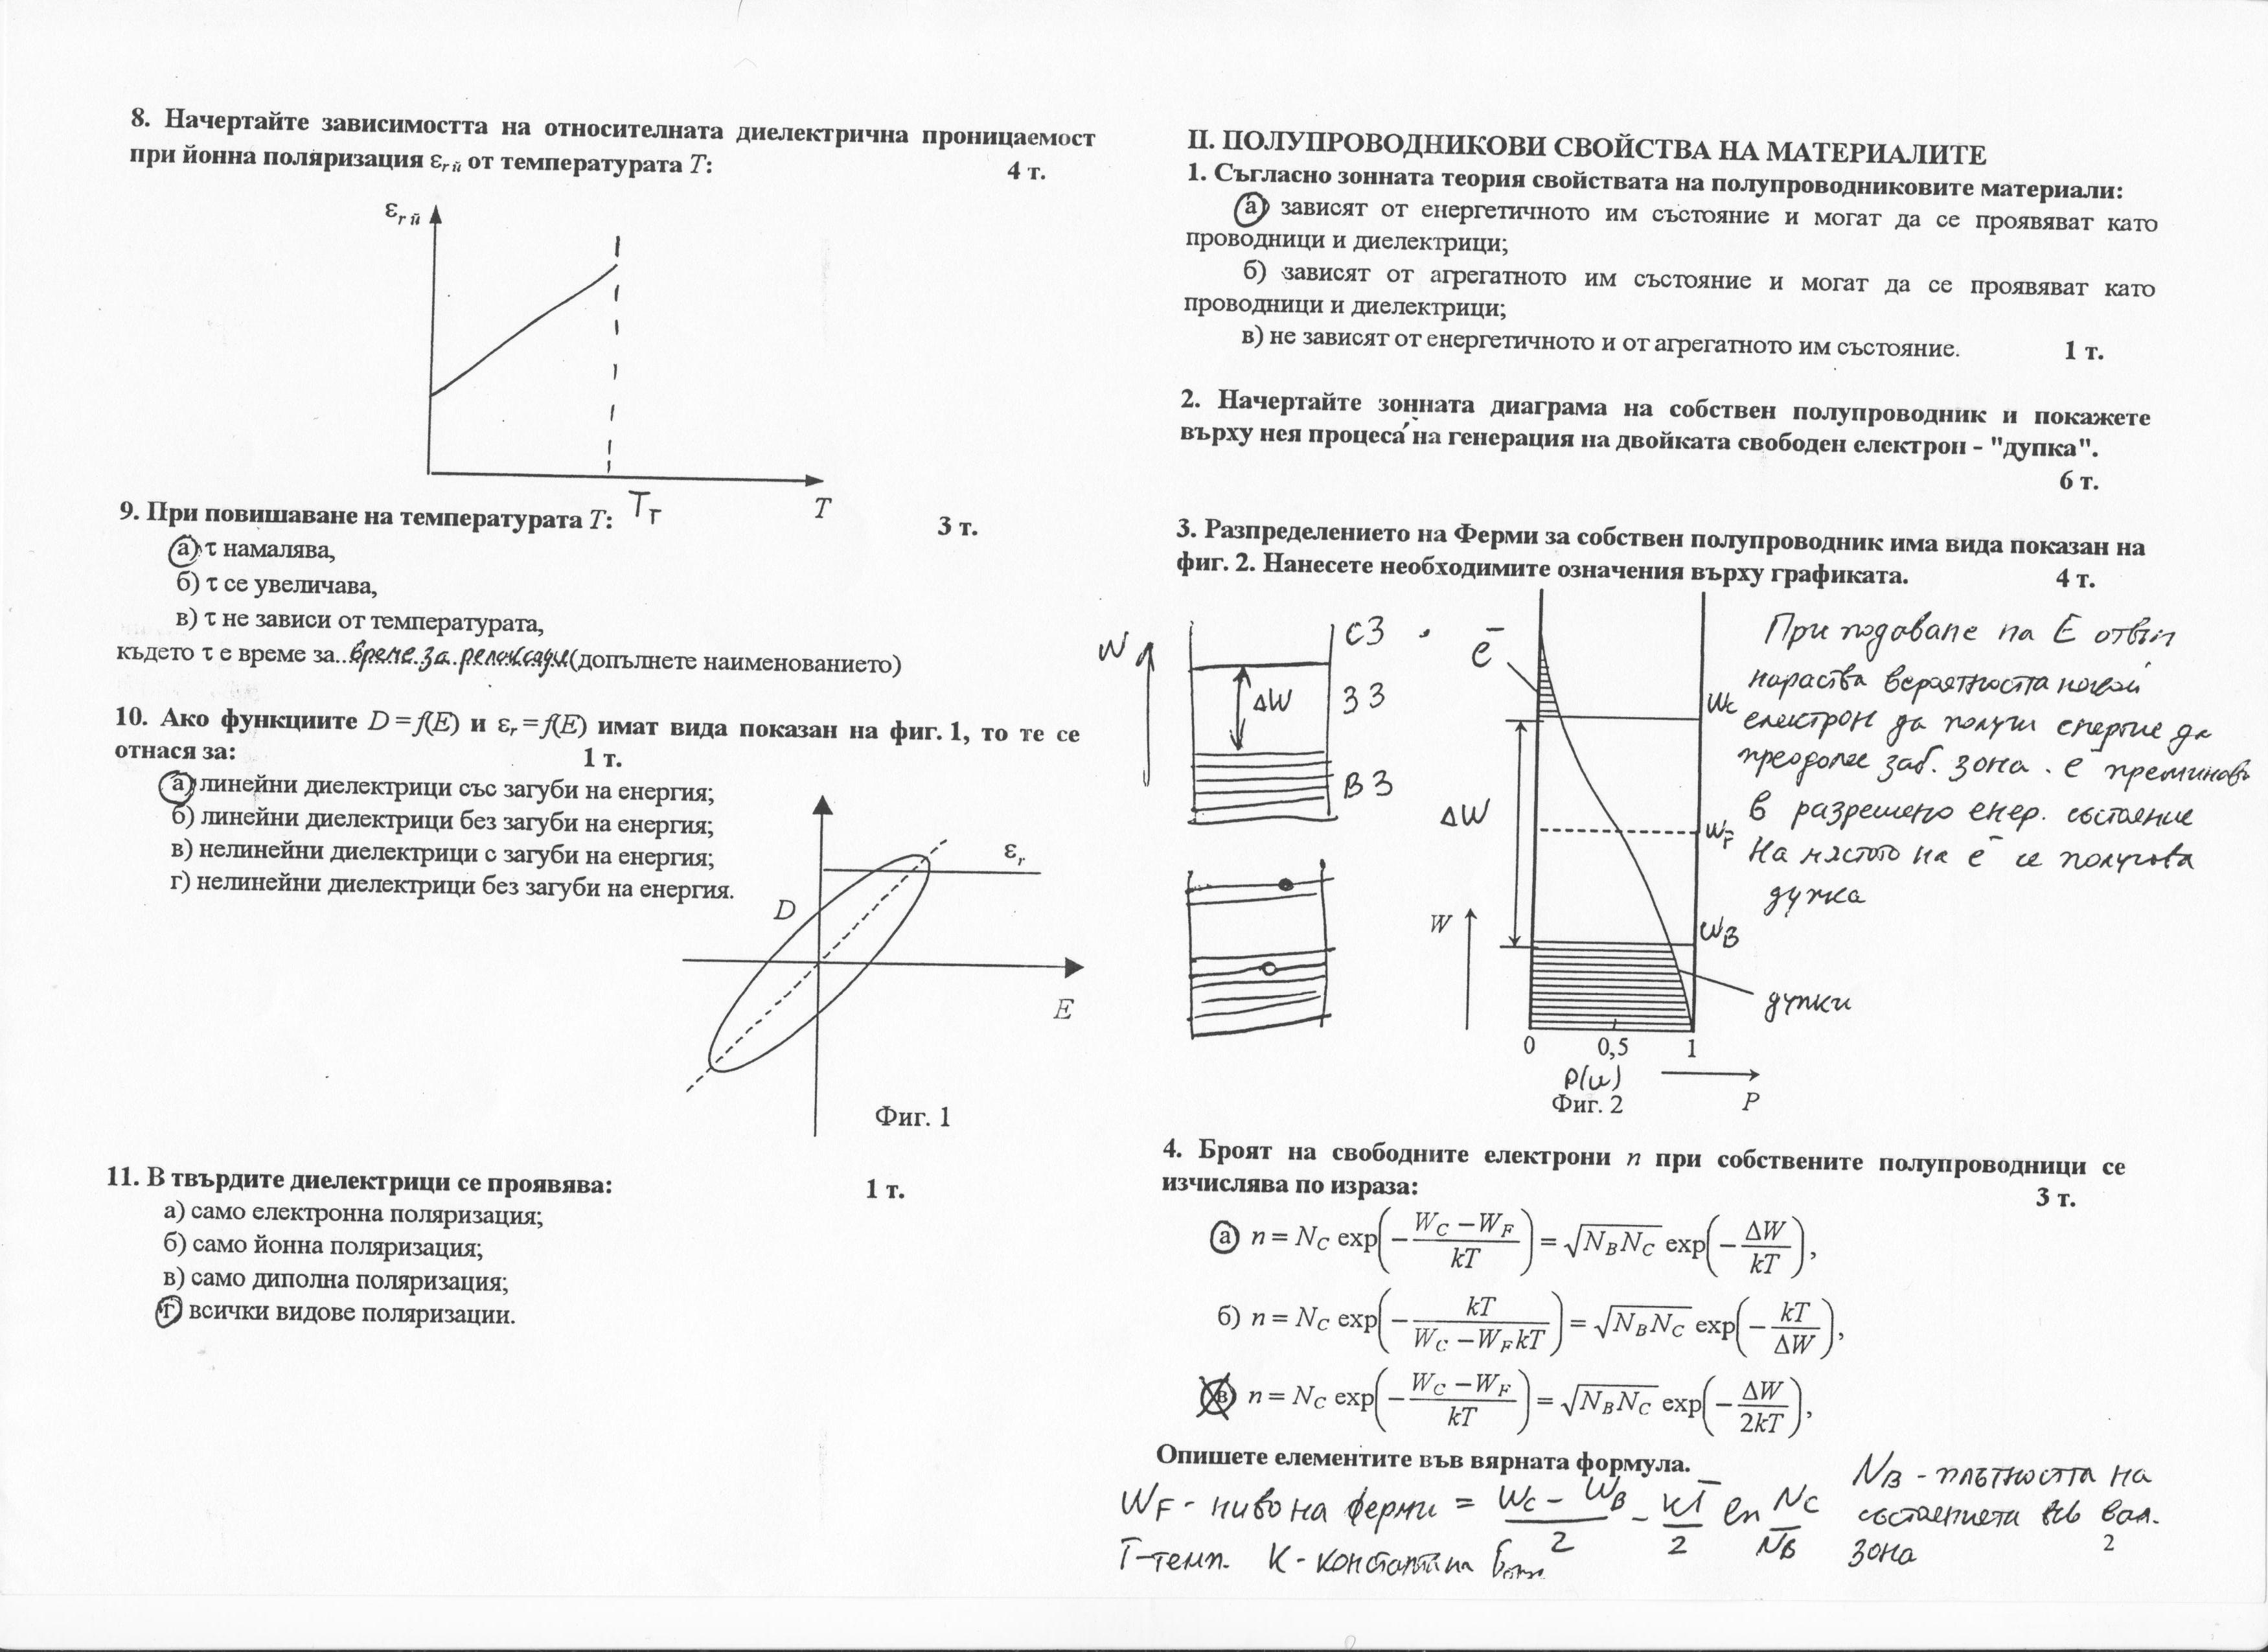 8. Начертайте зависимостта на относителната диелектрична проницаемост
при йонна поляризация εr й от температурата T: 4 т.
εr й
Tт
T
9. При повишаване на температурата T: 3 т.
а) τ намалява,
б) τ се увеличава,
в) τ не зависи от температурата,
където τ е време за..време.за..релаксация(допълнете наименованието)
10. Ако функциите D = f(E) и εr = f(E) имат вида показан на фиг. 1, то те се
отнася за: 1 т.
а) линейни диелектрици със загуби на енергия;
б) линейни диелектрици без загуби на енергия;
в) нелинейни диелектрици с загуби на енергия;
г) нелинейни диелектрици без загуби на енергия.
εr
D
E
Фиг. 1
11. В твърдите диелектрици се проявява: 1 т.
а) само електронна поляризация;
б) само йонна поляризация;
в) само диполна поляризация;
г) всички видове поляризации.
II. ПОЛУПРОВОДНИКОВИ СВОЙСТВА НА МАТЕРИАЛИТЕ
1. Съгласно зонната теория свойствата на полупроводниковите материали:
а) зависят от енергетичното им състояние и могат да се проявяват като
проводници и диелектрици;
б) зависят от агрегатното им състояние и могат да се проявяват като
проводници и диелектрици;
в) не зависят от енергетичното и от агрегатното им състояние. 1 т.
2. Начертайте зонната диаграма на собствен полупроводник и покажете
върху нея процеса на генерация на двойката свободен електрон - "дупка".
6 т.
3. Разпределението на Ферми за собствен полупроводник има вида показан на
фиг. 2. Нанесете необходимите означения върху графиката. 4 т.
W
СЗ
ΔW
ЗЗ
ВЗ
e⁻
Wc
ΔW
WF
W
WB
дупки
0 0,5 1
P(w)
P
Фиг. 2
При подаване на E отвън
нараства вероятността някой
електрон да получи енергие да
преодолее заб. зона. e преминава
в разрешено енер. състояние
На мястото на e⁻ се получава
дупка
4. Броят на свободните електрони n при собствените полупроводници се
изчислява по израза: 3 т.
а) n = NC exp(−(WC − WF)/kT) = √(NBNC) exp(−ΔW/kT),
б) n = NC exp(−kT/(WC − WFkT)) = √(NBNC) exp(−kT/ΔW),
в) n = NC exp(−(WC − WF)/kT) = √(NBNC) exp(−ΔW/2kT),
Опишете елементите във вярната формула.
WF - ниво на ферми = (Wc − WB)/2 − kT/2 ln NC/NB
T - темп. K - константа на
NB - плътността на
състоянията във вал.
зона
2